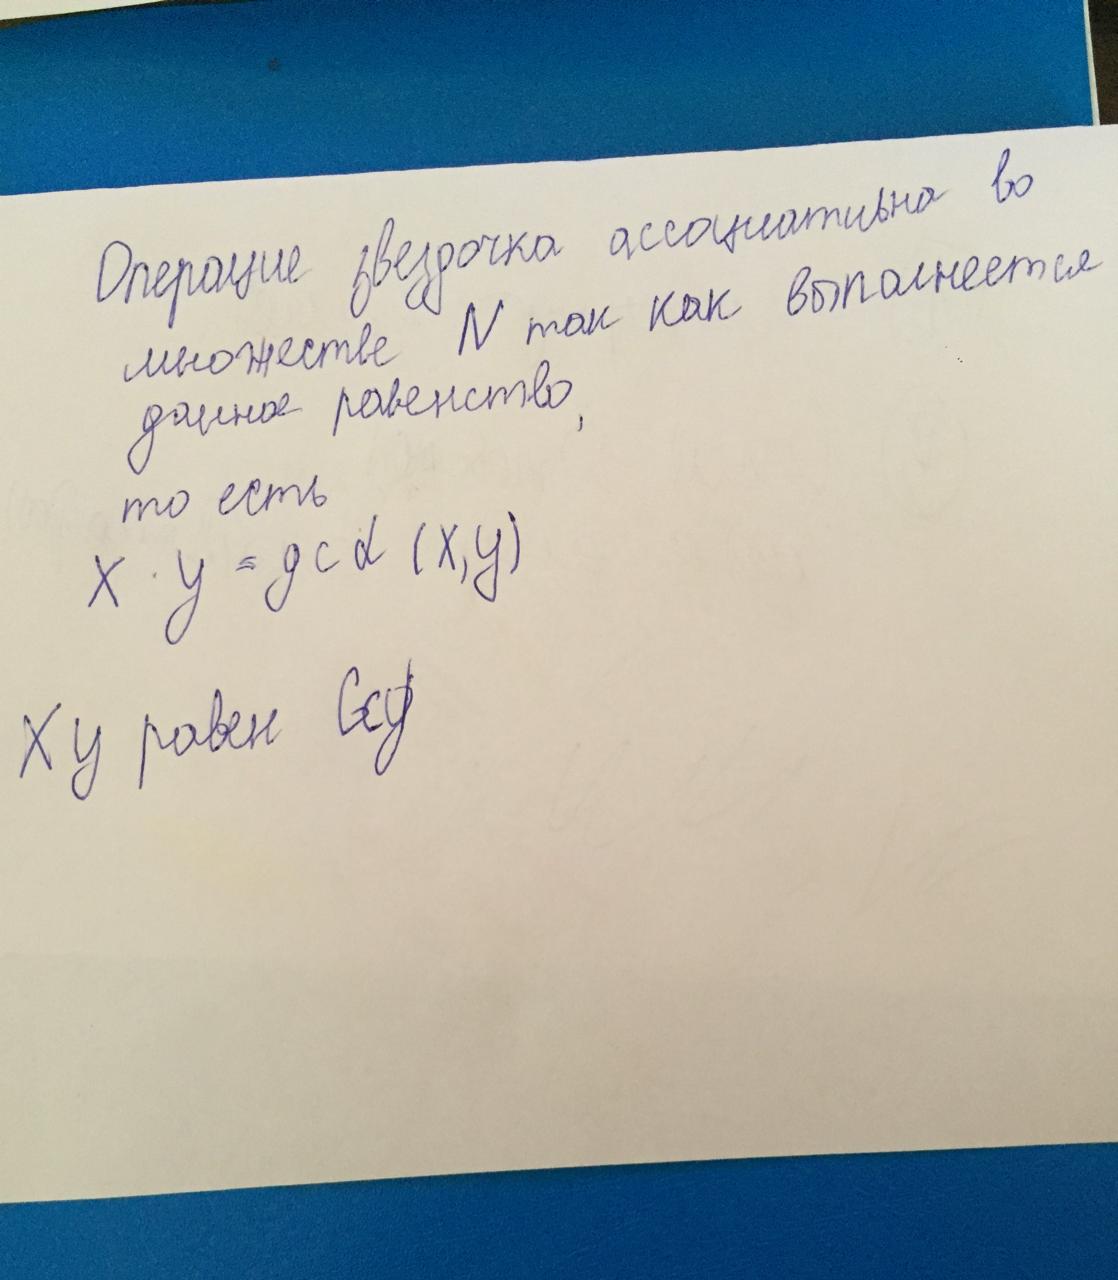 Операцие звездочка ассоциативна во
множестве N так как выполнеется
данное равенство,
то есть
X · y = gcd (X,y)
Xy равен